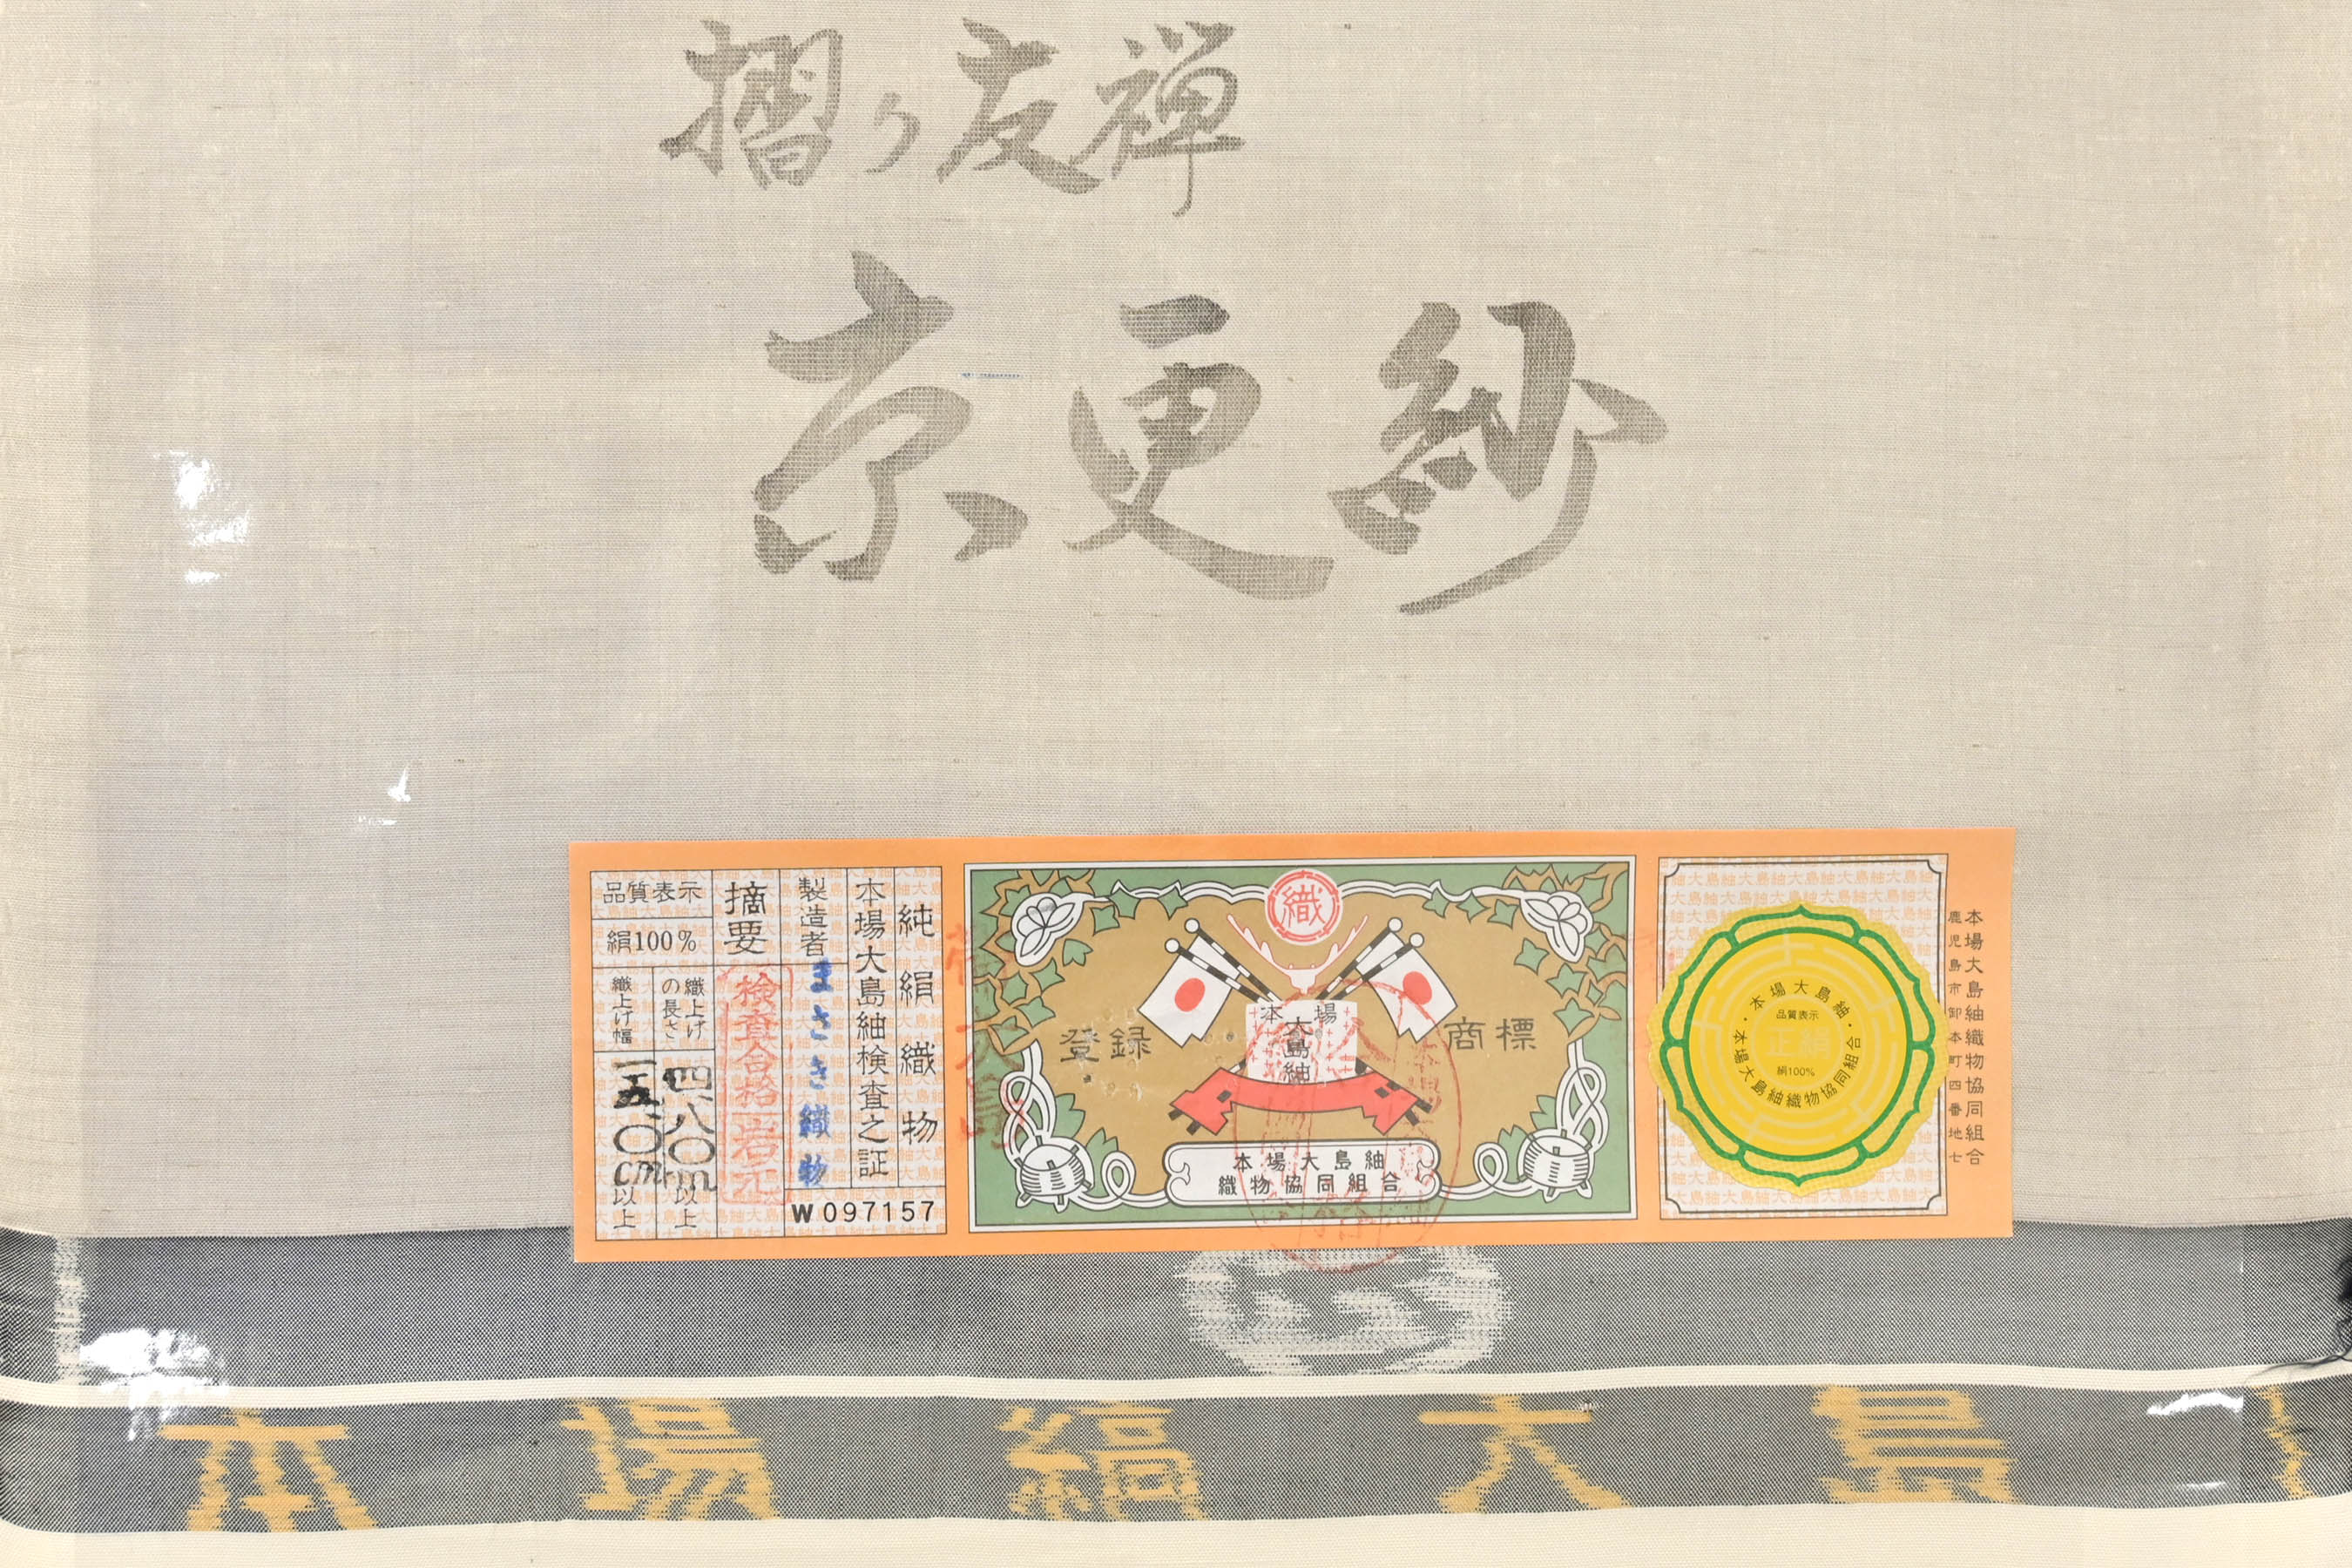 摺り友禅
京更紗
純絹織物
本場大島紬検査之証
製造者
まさき織物
W097157
摘要
検査合格
品質表示
絹100%
織上げの長さ
四、八〇m以上
織上げ幅
以上
織
登録
商標
本場
大島紬
本場大島紬
織物協同組合
本場大島紬
品質表示
正絹
絹100%
本場大島紬織物協同組合
本場大島紬織物協同組合
鹿児島市卸本町四番地七
本場縞大島